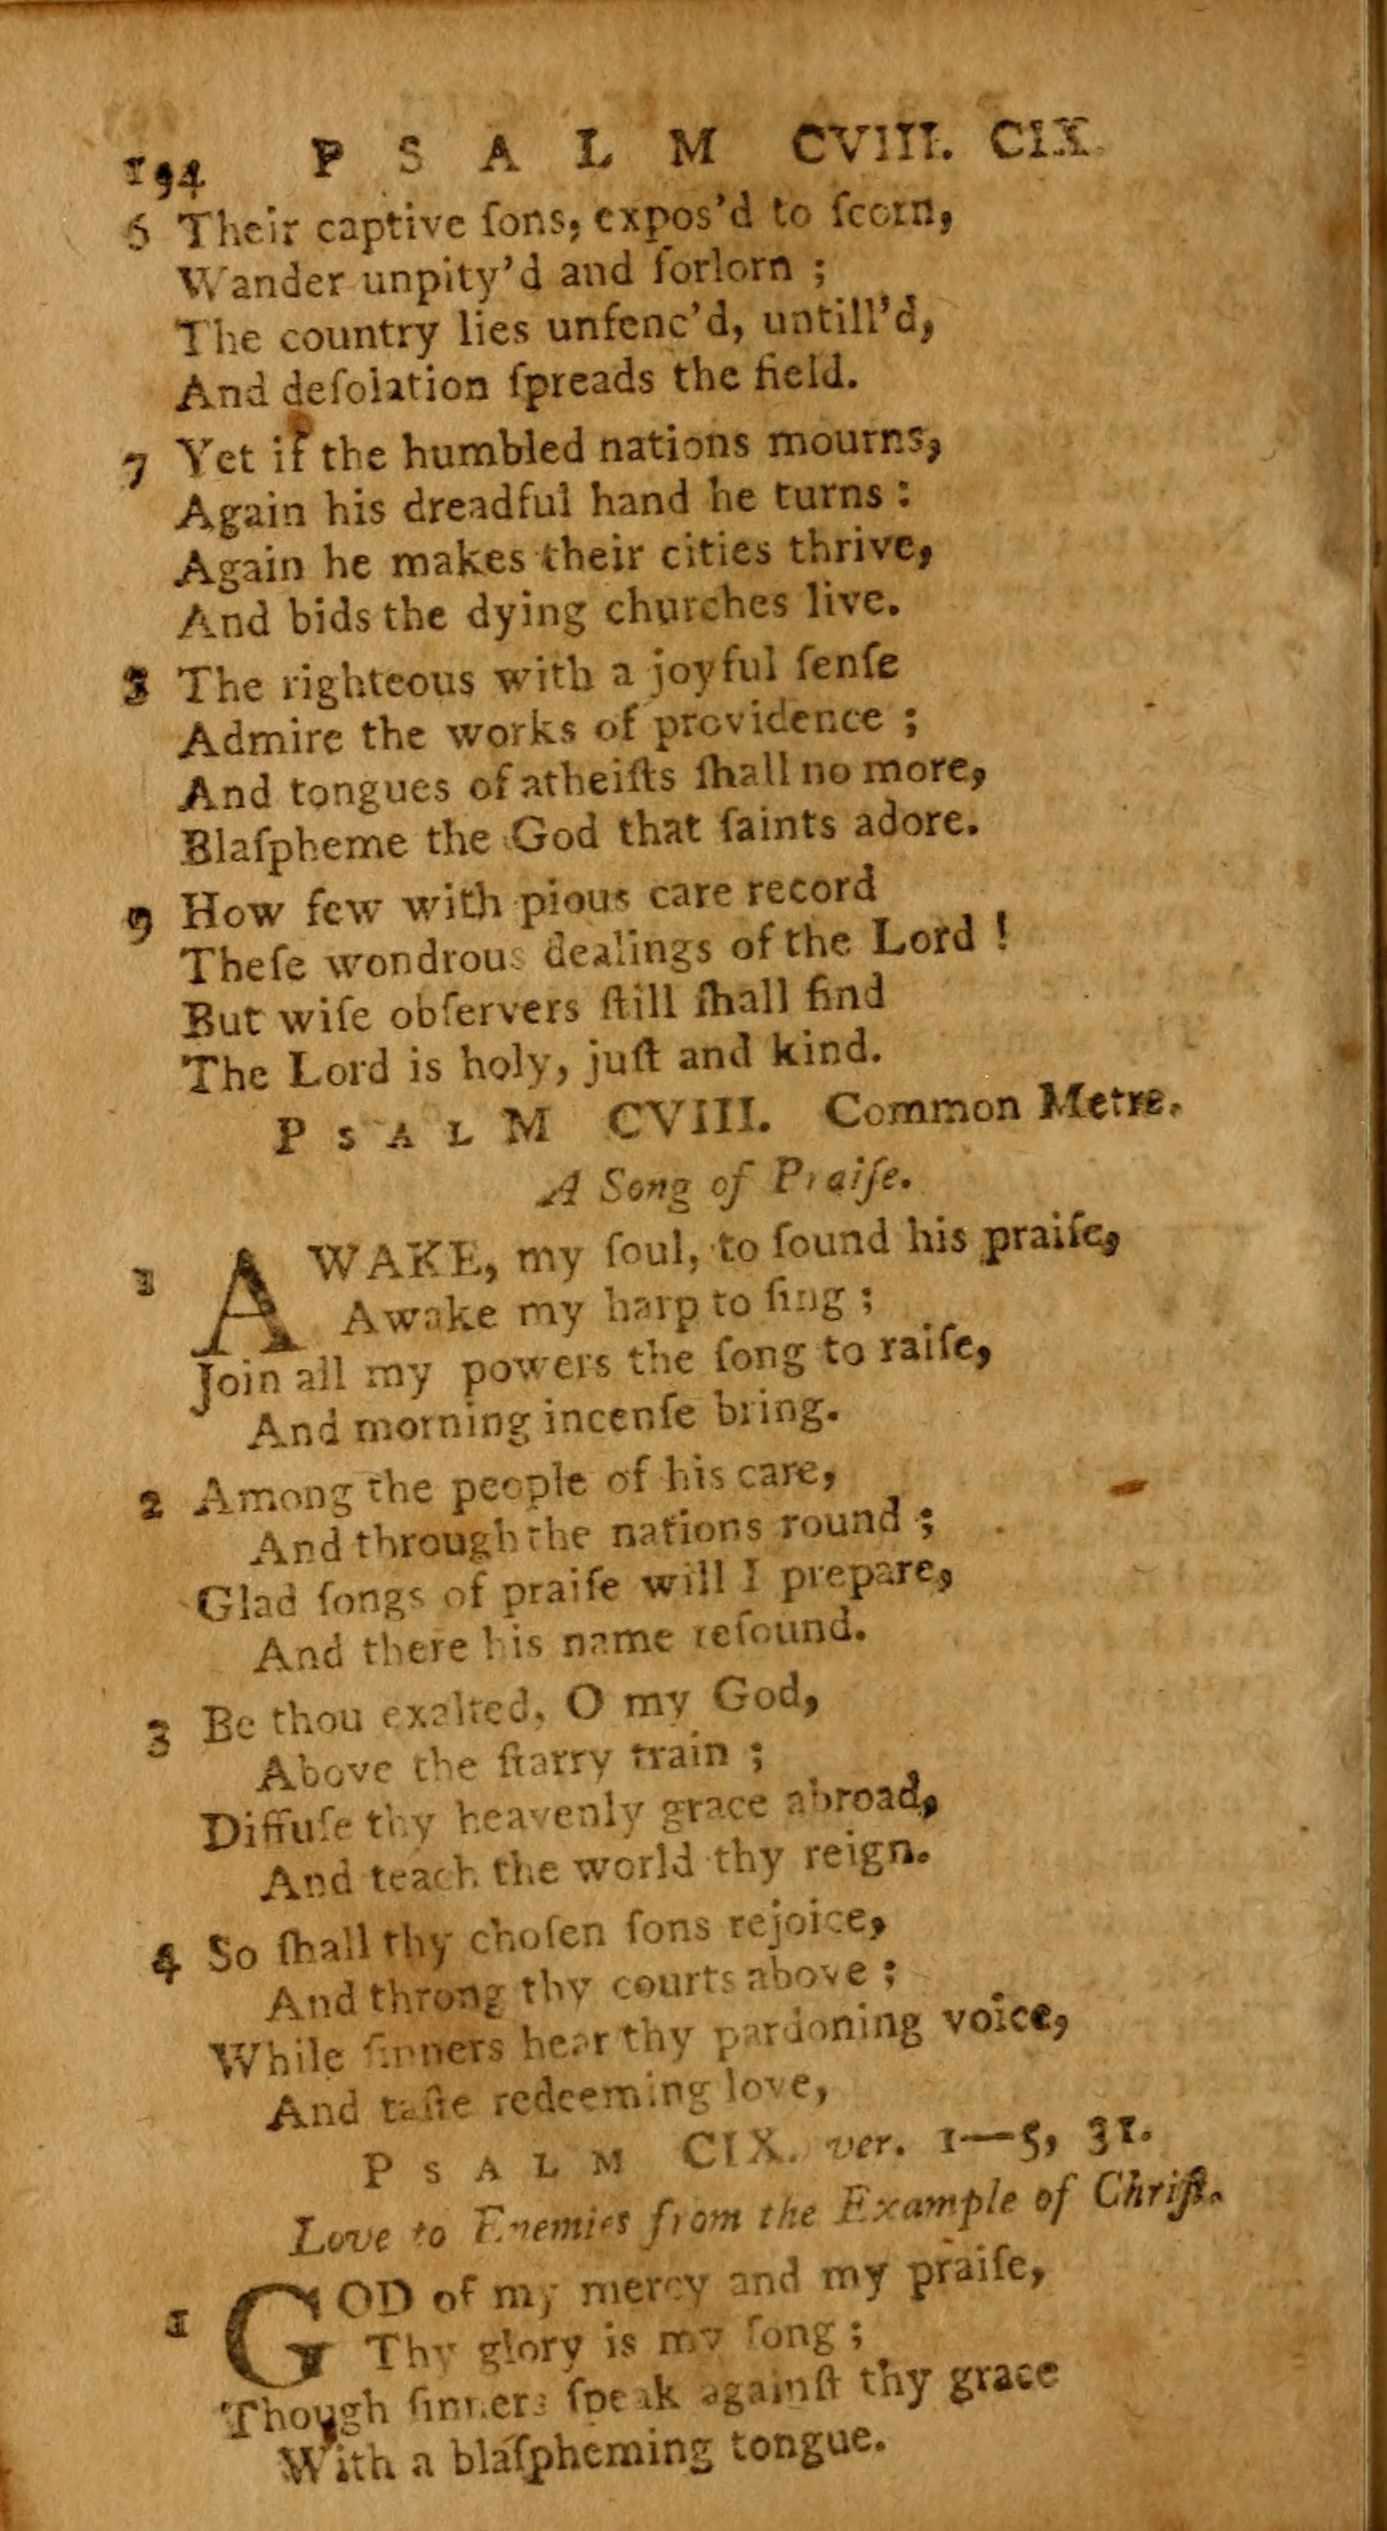 194 PSALM CVIII. CIX.
6 Their captive ſons, expos'd to ſcorn,
Wander unpity'd and forlorn ;
The country lies unfenc'd, untill'd,
And deſolation ſpreads the field.
7 Yet if the humbled nations mourns,
Again his dreadful hand he turns :
Again he makes their cities thrive,
And bids the dying churches live.
8 The righteous with a joyful ſenſe
Admire the works of providence ;
And tongues of atheiſts ſhall no more,
Blaſpheme the God that ſaints adore.
9 How few with pious care record
Theſe wondrous dealings of the Lord !
But wiſe obſervers ſtill ſhall find
The Lord is holy, juſt and kind.
PSALM CVIII. Common Metre.
A Song of Praiſe.
1 AWAKE, my ſoul, to ſound his praiſe,
Awake my harp to ſing ;
Join all my powers the ſong to raiſe,
And morning incenſe bring.
2 Among the people of his care,
And through the nations round ;
Glad ſongs of praiſe will I prepare,
And there his name reſound.
3 Be thou exalted, O my God,
Above the ſtarry train ;
Diffuſe thy heavenly grace abroad,
And teach the world thy reign.
4 So ſhall thy choſen ſons rejoice,
And throng thy courts above ;
While ſinners hear thy pardoning voice,
And taſte redeeming love,
PSALM CIX. ver. 1—5, 31.
Love to Enemies from the Example of Chriſt.
1 GOD of my mercy and my praiſe,
Thy glory is my ſong ;
Though ſinners ſpeak againſt thy grace
With a blaſpheming tongue.